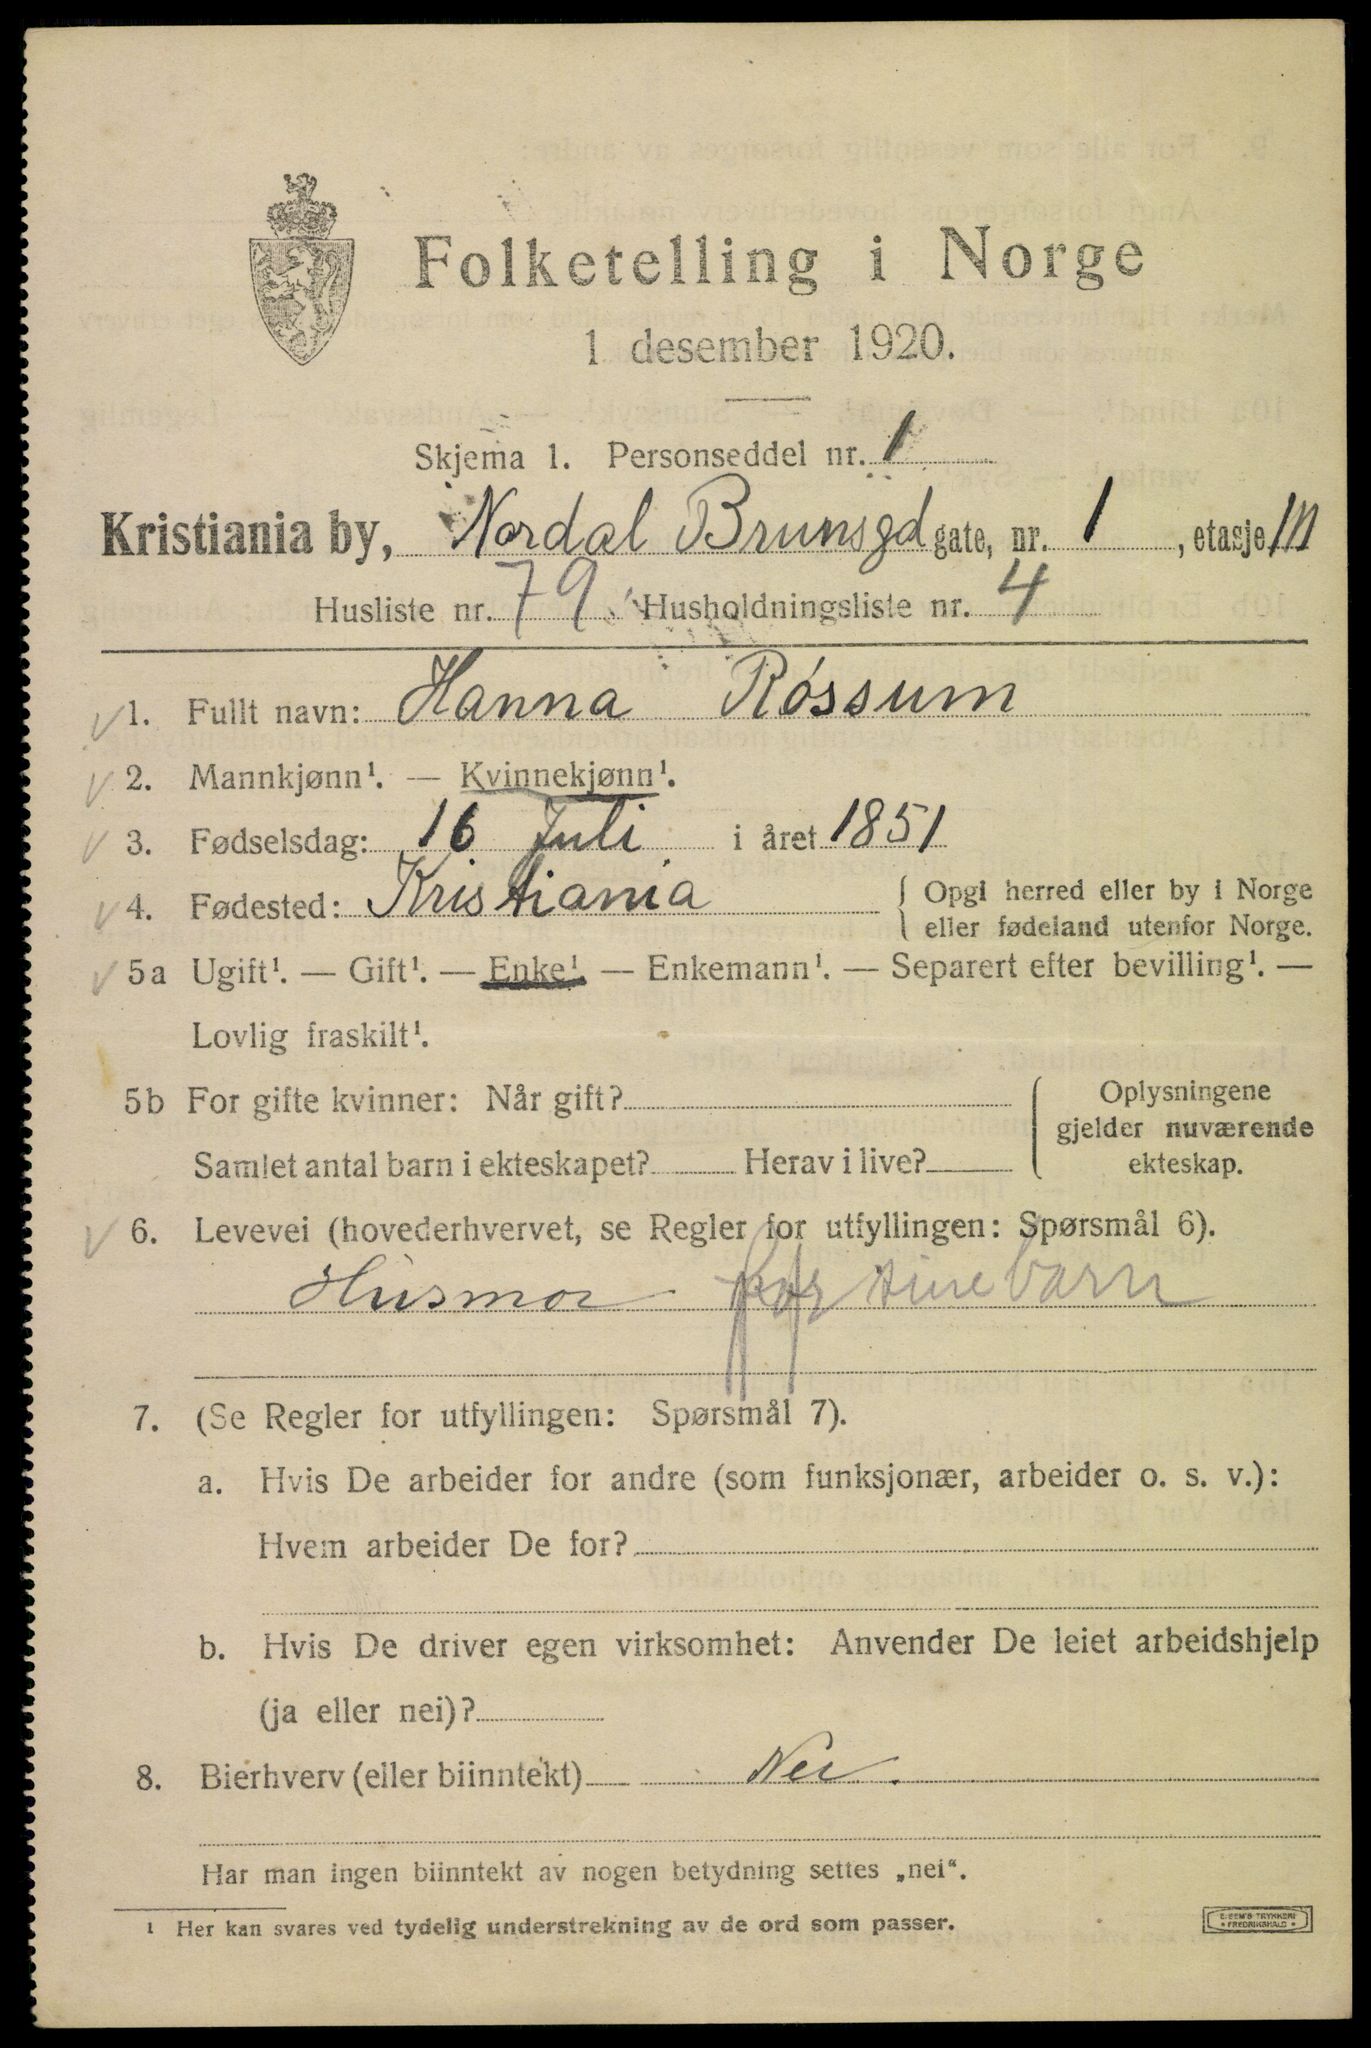 Folketelling i Norge
1 desember 1920.
Skjema 1. Personseddel nr. 1
Kristiania by, Nordal Brunsgd gate, nr. 1, etasje III
Husliste nr. 79 Husholdningsliste nr. 4
1. Fullt navn: Hanna Róssum
2. Mannkjønn¹. — Kvinnekjønn¹.
3. Fødselsdag: 16 Juli i året 1851
4. Fødested: Kristiania { Opgi herred eller by i Norge
eller fødeland utenfor Norge.
5a Ugift¹. — Gift¹. — Enke¹. — Enkemann¹. — Separert efter bevilling¹. —
Lovlig fraskilt¹.
5b For gifte kvinner: Når gift? { Oplysningene
gjelder nuværende
Samlet antal barn i ekteskapet? Herav i live? ekteskap.
6. Levevei (hovederhvervet, se Regler for utfyllingen: Spørsmål 6).
Husmor for sine barn
7. (Se Regler for utfyllingen: Spørsmål 7).
a. Hvis De arbeider for andre (som funksjonær, arbeider o. s. v.):
Hvem arbeider De for?
b. Hvis De driver egen virksomhet: Anvender De leiet arbeidshjelp
(ja eller nei)?
8. Bierhverv (eller biinntekt) Nei.
Har man ingen biinntekt av nogen betydning settes „nei“.
¹ Her kan svares ved tydelig understrekning av de ord som passer.